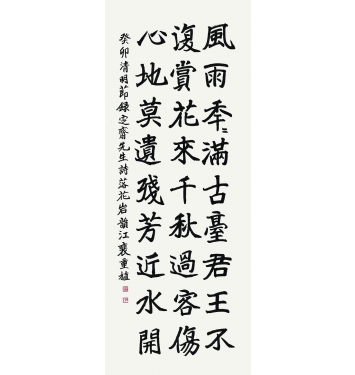 風雨秊〻滿古臺君王不
復賞花來千秋過客傷
心地莫遺殘芳近水開
癸卯清明節錄定齋先生詩落花岩韻江裵重植